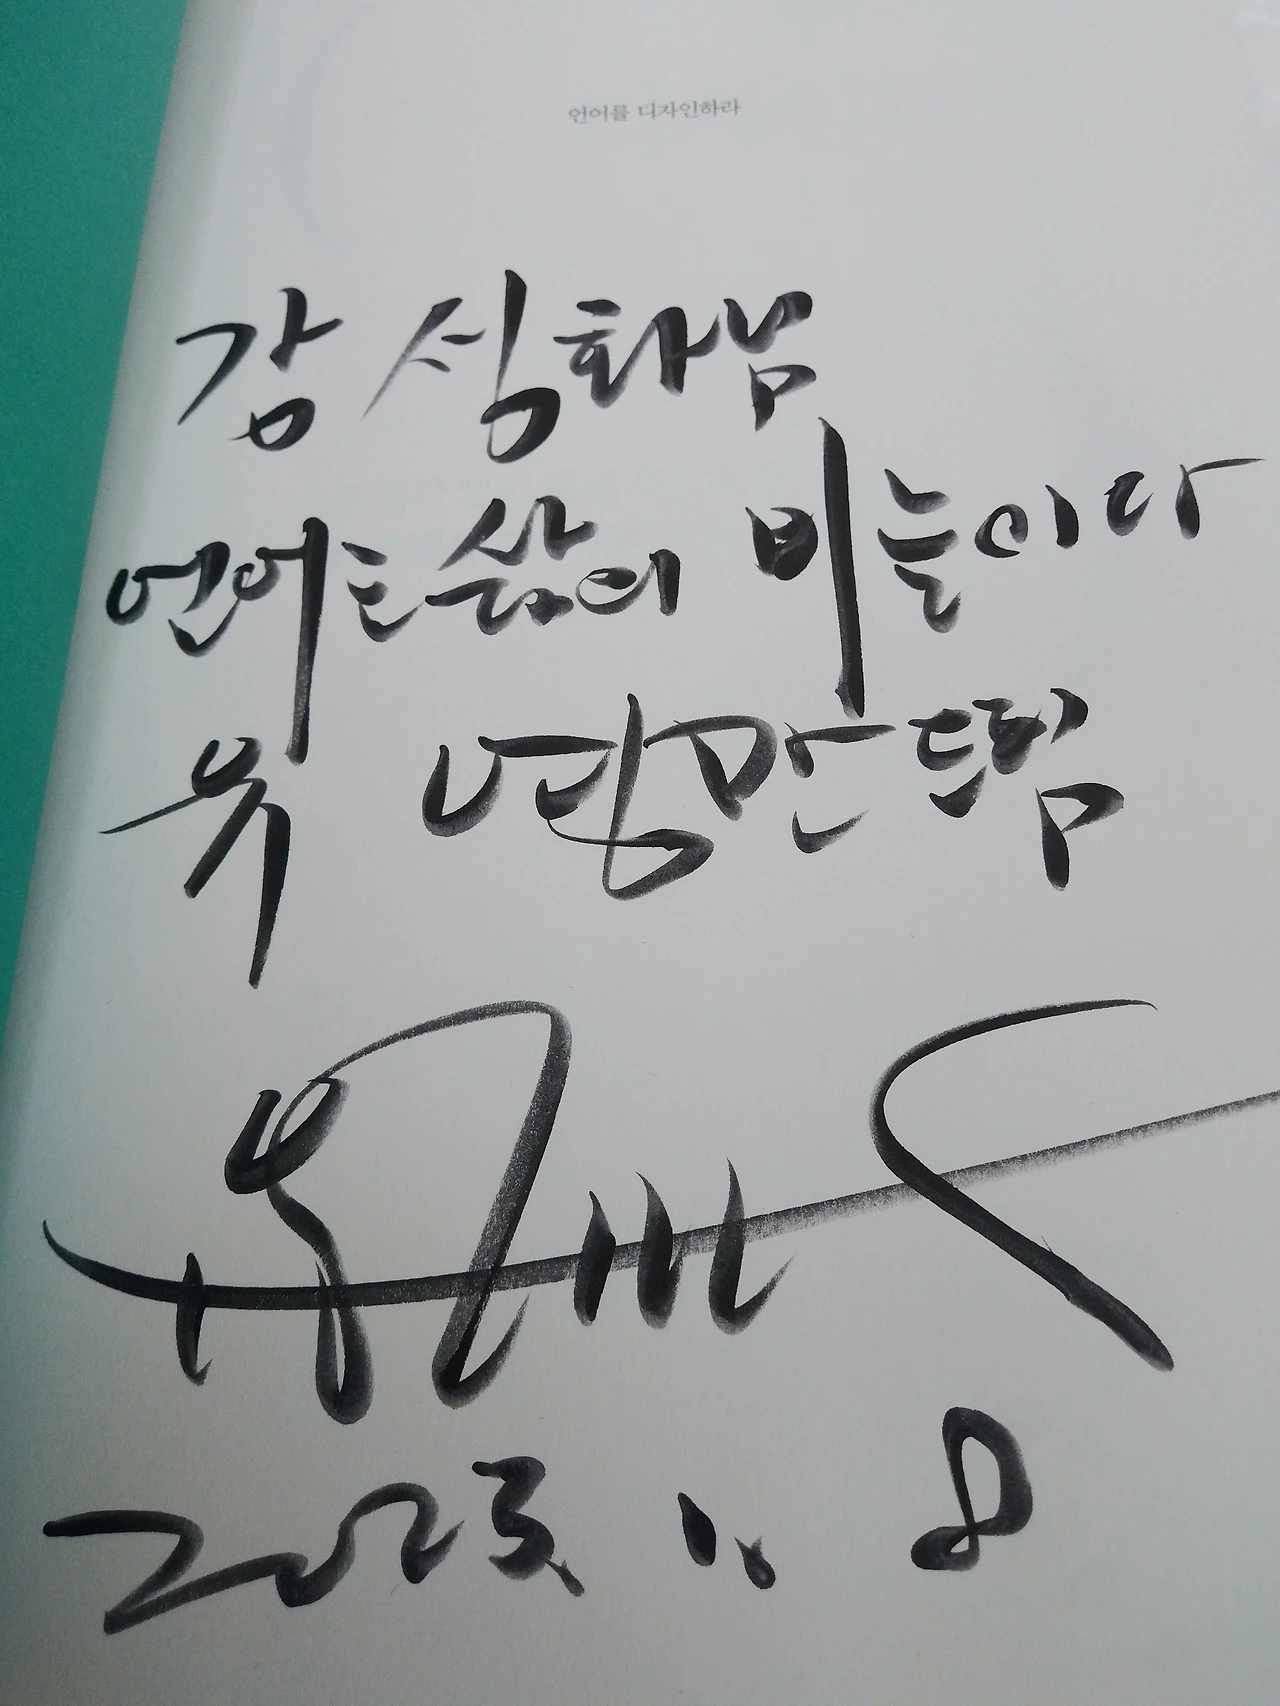 언어를 디자인하라
강 성화님
언어는 삶의 비늘이다
유 영만 드림
2023. 1. 8